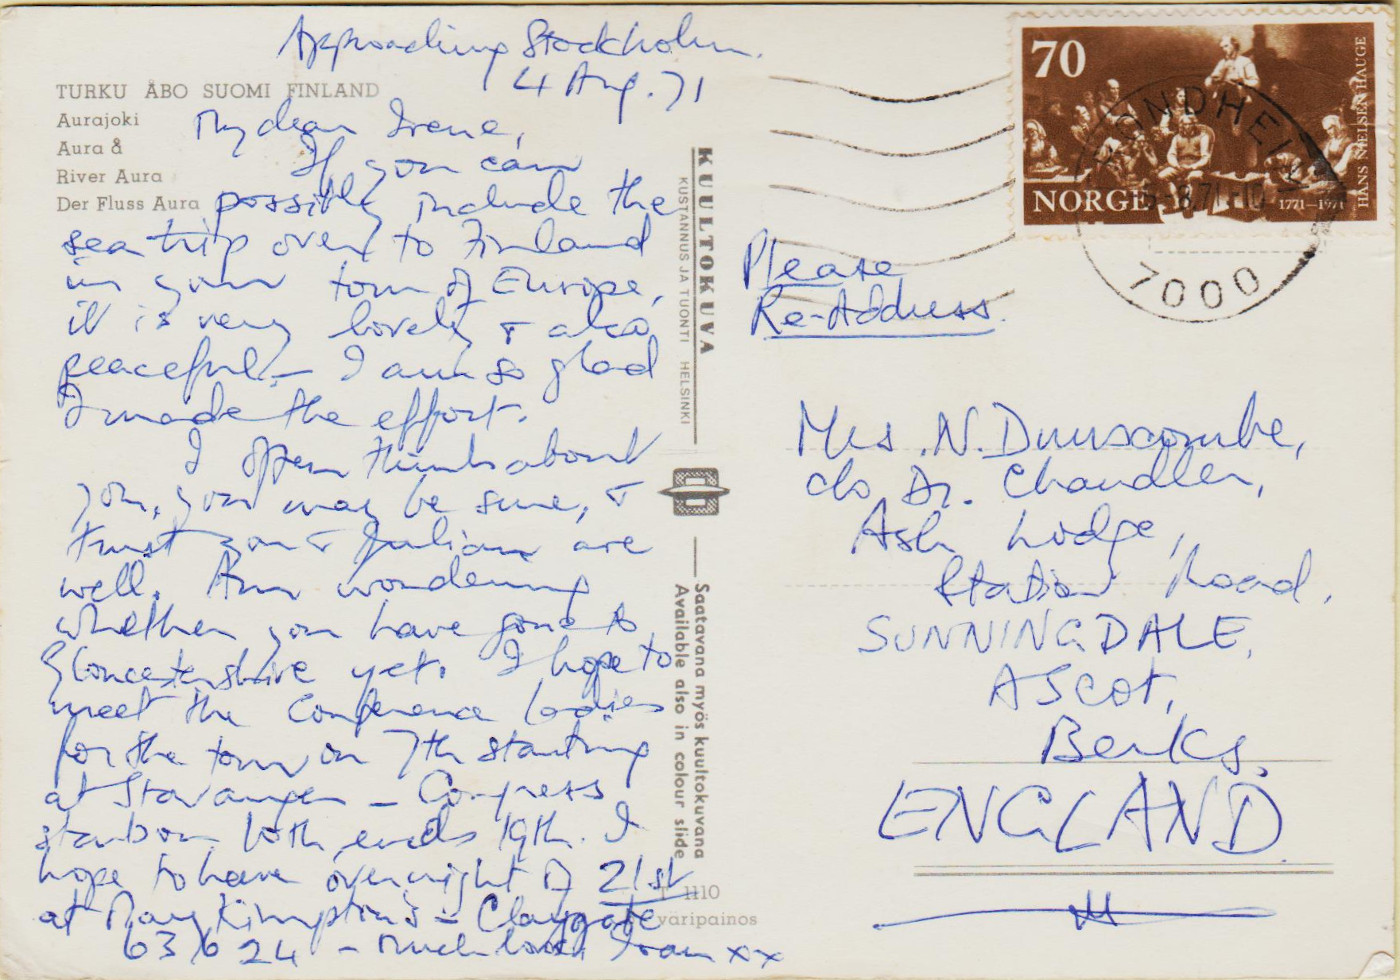 Approaching Stockholm.
4 Aug. 71
TURKU ÅBO SUOMI FINLAND
Aurajoki
Aura å
River Aura
Der Fluss Aura
My dear Irene,
If you can
possibly include the
sea trip over to Finland
in your tour of Europe,
it is very lovely & also
peaceful – I am so glad
I made the effort.
I often think about
you, you may be sure, &
trust you & Julian are
well. Am wondering
whether you have gone to
Gloucestershire yet. I hope to
meet the Conference ladies
for the tour on 7th starting
at Stavanger – Congress
starts on 10th, ends 19th. I
hope to have overnight of 21st
at Mary Kimpton's – Claygate
63624 – Much love, xx
KUULTOKUVA
KUSTANNUS JA TUONTI HELSINKI
Saatavana myös kuultokuvana
Available also in colour slide
T 1110
väripainos
70
NORGE
1771–1971
HANS NIELSEN HAUGE
TRONDHEIM
5.-8.71
7000
Please
Re-Address.
Mrs. N. Dunscombe,
c/o Dr. Chandler,
Ash Lodge,
Station Road,
SUNNINGDALE,
ASCOT,
Berks,
ENGLAND.